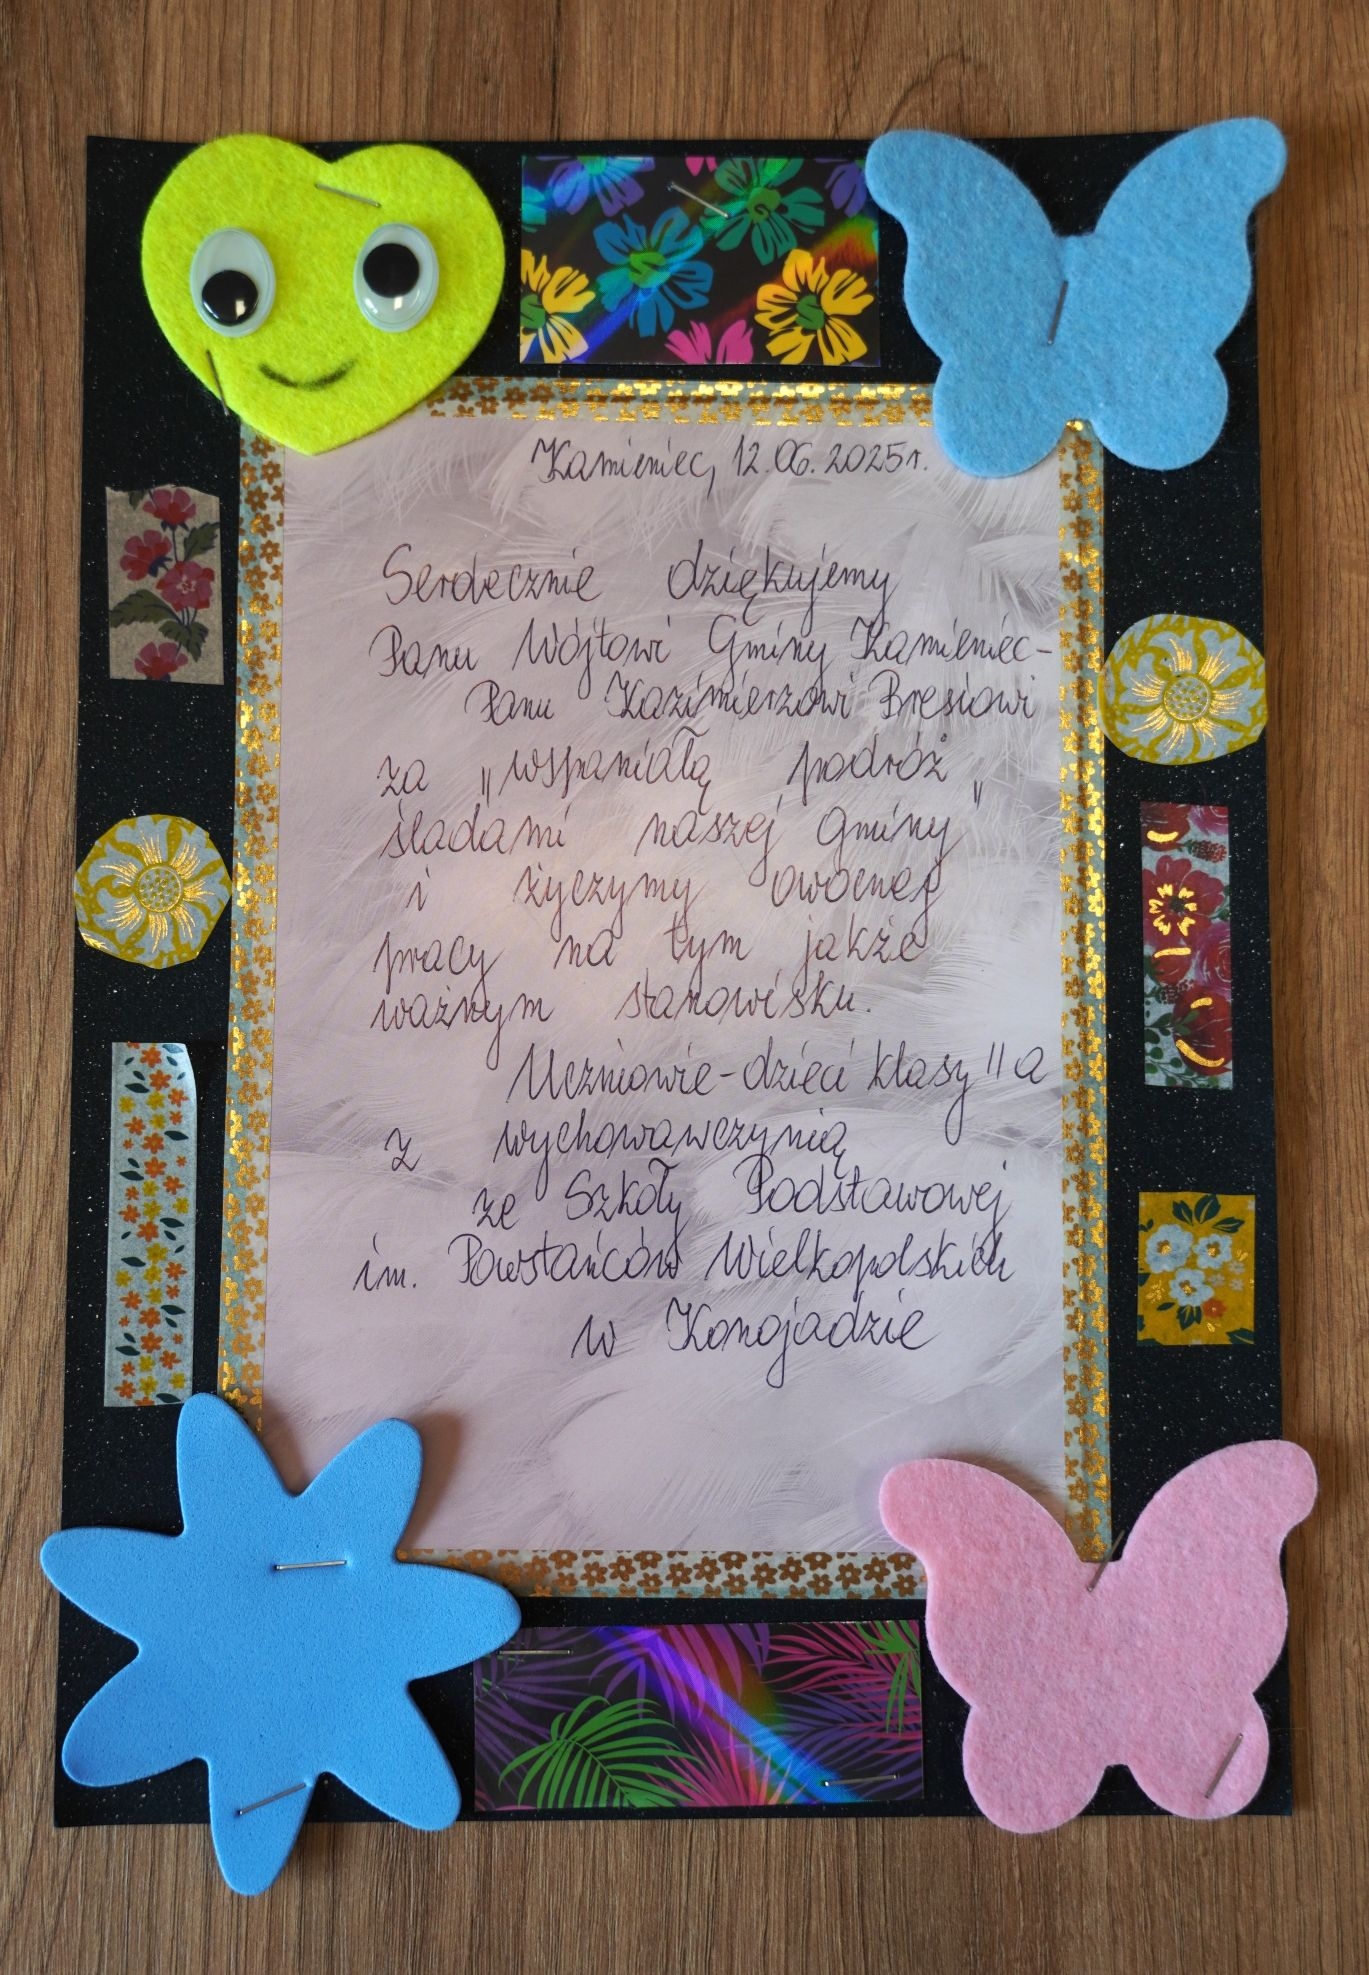 Kamieniec, 12.06.2025r.
Serdecznie dziękujemy
Panu Wójtowi Gminy Kamieniec-
Panu Kazimierzowi Bresiowi
za „wspaniałą podróż
śladami naszej gminy”
i życzymy owocnej
pracy na tym jakże
ważnym stanowisku.
Uczniowie-dzieci klasy II a
z wychowawczynią
ze Szkoły Podstawowej
im. Powstańców Wielkopolskich
w Konojadzie